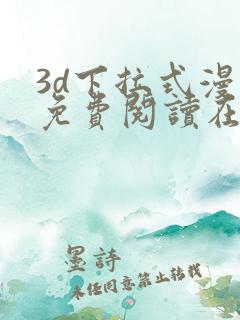 3d下拉式漫
免費閱讀在
墨詩
未經同意禁止轉載